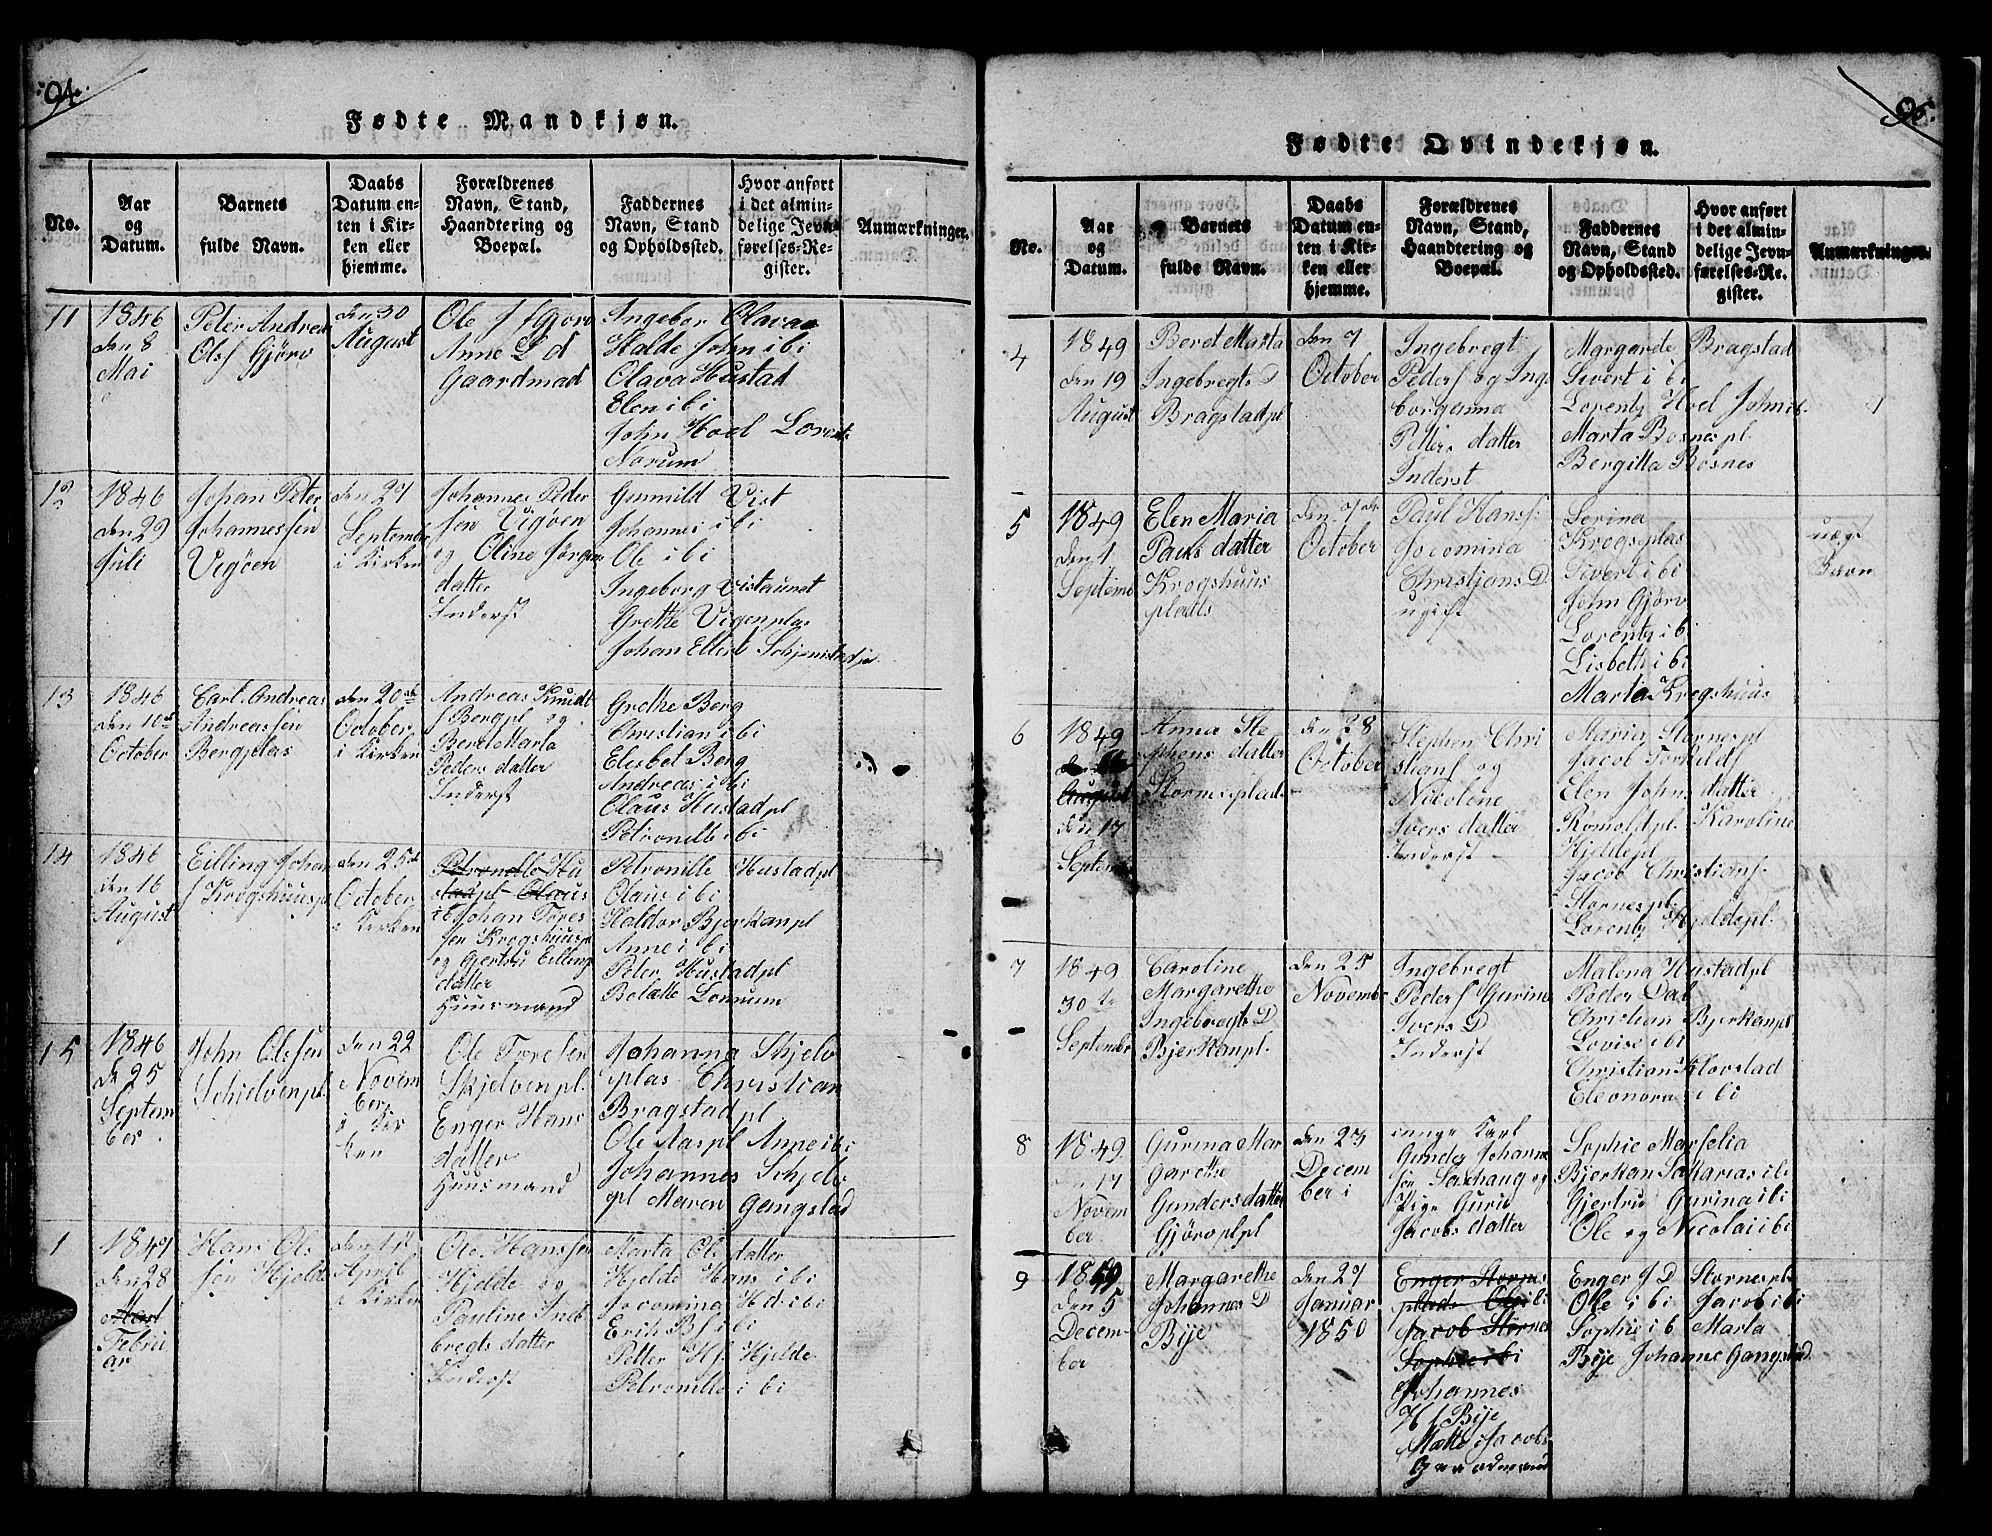 94.
Fødte Mandkjøn.
No.
Aar
og
Datum.
Barnets
fulde Navn.
Daabs
Datum en-
ten i Kir-
ken eller
hjemme.
Forældrenes
Navn, Stand,
Haandtering og
Boepæl.
Faddernes
Navn, Stand
og Opholdssted.
Hvor anført
i det almin-
delige Jevn-
førelses-Re-
gister.
Anmærkninger.
11
1846
den 8
Mai
Peter Andreas
Ols f Gjörv
den 30
August
Anne
Gaardmad
Ingebor Olavaa
Halde John i bi
Olava Hustad
Elen i bi
John Hoel Lorents
Norum
12
1846
den 29
Juli
Johan Peter
Johannessen
Vigöen
den 27
September
i Kirken
Johannes Peder
sen Vigöen
og Oline Jörgens
datter
Inderst
Gunnild Vist
Johannes i bi
Ole i bi
Ingeborg Vistaunet
Grethe Vigenplas
Johan Ellert
13
1846
den 10de
October
Carl Andreas
Andreassen
Bergplas
den 20de
October
i Kirken
Andreas Knudt
f Bergpl og
Beret Marta
Peders datter
Inderst
Grethe Berg
Christian i bi
Elesbet Berg
Andreas i bi
Olaus Hustadpl
Petronille i bi
14
1846
den 16
August
Eilling Johan
f Krogshuuspl
den 25de
October
i Kirken
Petronelle Hu
stadpl Olaus
i bi Johan Tores
sen Krogshuuspl
og Gjertru Eilling
datter
Huusmand
Petronille Hustadpl
Olaus i bi
Haldor Bjerkanpl
Anne i bi
Peter Hustadpl
Lornum
15
1846
d 25
Septem
ber
John Olssen
Schielvenpl
den 22
Novem
ber
i Kir
ken
Ole
Skjelvenpl
Enger Hans
datter
Huusmand
Johanna Skjelv
plas Christian
Bragstadpl
Ole Aaspl Anne i bi
Johannes Schjelv
pl Maren Gangstad
1
1847
den 28
Febru
ar
Hans Ols
sen Hjelde
April
i Kirken
Ole Hanssen
Hjelde og
Pauline Inb
bregts datter
Inderst
Marta Ols datter
Hjelde Hans i bi
Jocomina H d i bi
Erich B f i bi
Petter H f Hjelde
Petronille i bi
95.
Fødte Qvindekjøn.
No.
Aar
og
Datum.
Barnets
fulde Navn.
Daabs
Datum en-
ten i Kir-
ken eller
hjemme.
Forældrenes
Navn, Stand,
Haandtering og
Boepæl.
Faddernes
Navn, Stand
og Opholdssted.
Hvor anført
i det almin-
delige Jevn-
førelses-Re-
gister.
Anmærkninger.
4
1849
den 19
August
Beret Marta
Ingebregts D
Bragstadpl
den 7
October
Ingebregt
Peders f og Inge
borganna
Petters datter
Inderst
Margarde Bragstad
Sivert i bi
Lorentz Hoel John i b
Marta Bosnes pl.
Bergitta Rösnes
5
1849
den 1
Septemb
Elen Maria
Pauls datter
Krogshuus
plads
den 7de
October
Paul Hansf
Jocomina
Christjans D
ugift
Serina
Krogsplas
Sivert i bi
John Gjörv
Lorentz i bi
Lisbeth i bi
Marta Krogshuus
uægt
Barn
6
1849
August
den 17
September
Anna Ste
phens datter
Stornesplads
den 28
October
Stephen Chri
stianf og
Nicoline
Ivers datter
Inderst
Maria Stornespl
Jacob Torkildf
Elen Johns datter
Romoldpl. Karoline
Hjeldepl
Jacob Christianf.
Stornespl.
Lorentz Hjeldepl.
7
1849
30te
September
Caroline
Margarethe
Ingebregts D
Bjerkanpl.
den 25
Novembr
Ingebregt
Peders f Gurine
Ivers D
Inderst
Malena Hustadpl
Peder Dal
Christian Bjerkanpl
Lovise i bi
Christian Klovstad
Eleonora i bi
8
1849
den 17
Novem
ber
Gurina Mar
garethe
Gunders datter
Gjörvplpl
den 23
Decem
ber i
unge Karl
Gunder Johanne
sen Saxhaug og
Pige Guru
Jacobs datter
Sophie Marselia
Bjerkan Sakarias i bi
Gjertru Gurina i bi
Ole og Nicolai i bi
9
1849
den 5
Decem-
ber
Margarethe
Johannes D
Bije
den 27
Januar
1850
Enger Stornes
plads Ole i bi
Jacob Stornes
Sophie i bi
Johannes
H f Bije
Mætte Jacobs
Enger J D Stornespl
Ole i bi Jacob i bi
Sophie i b Marta
Bije Johanne Gangstad